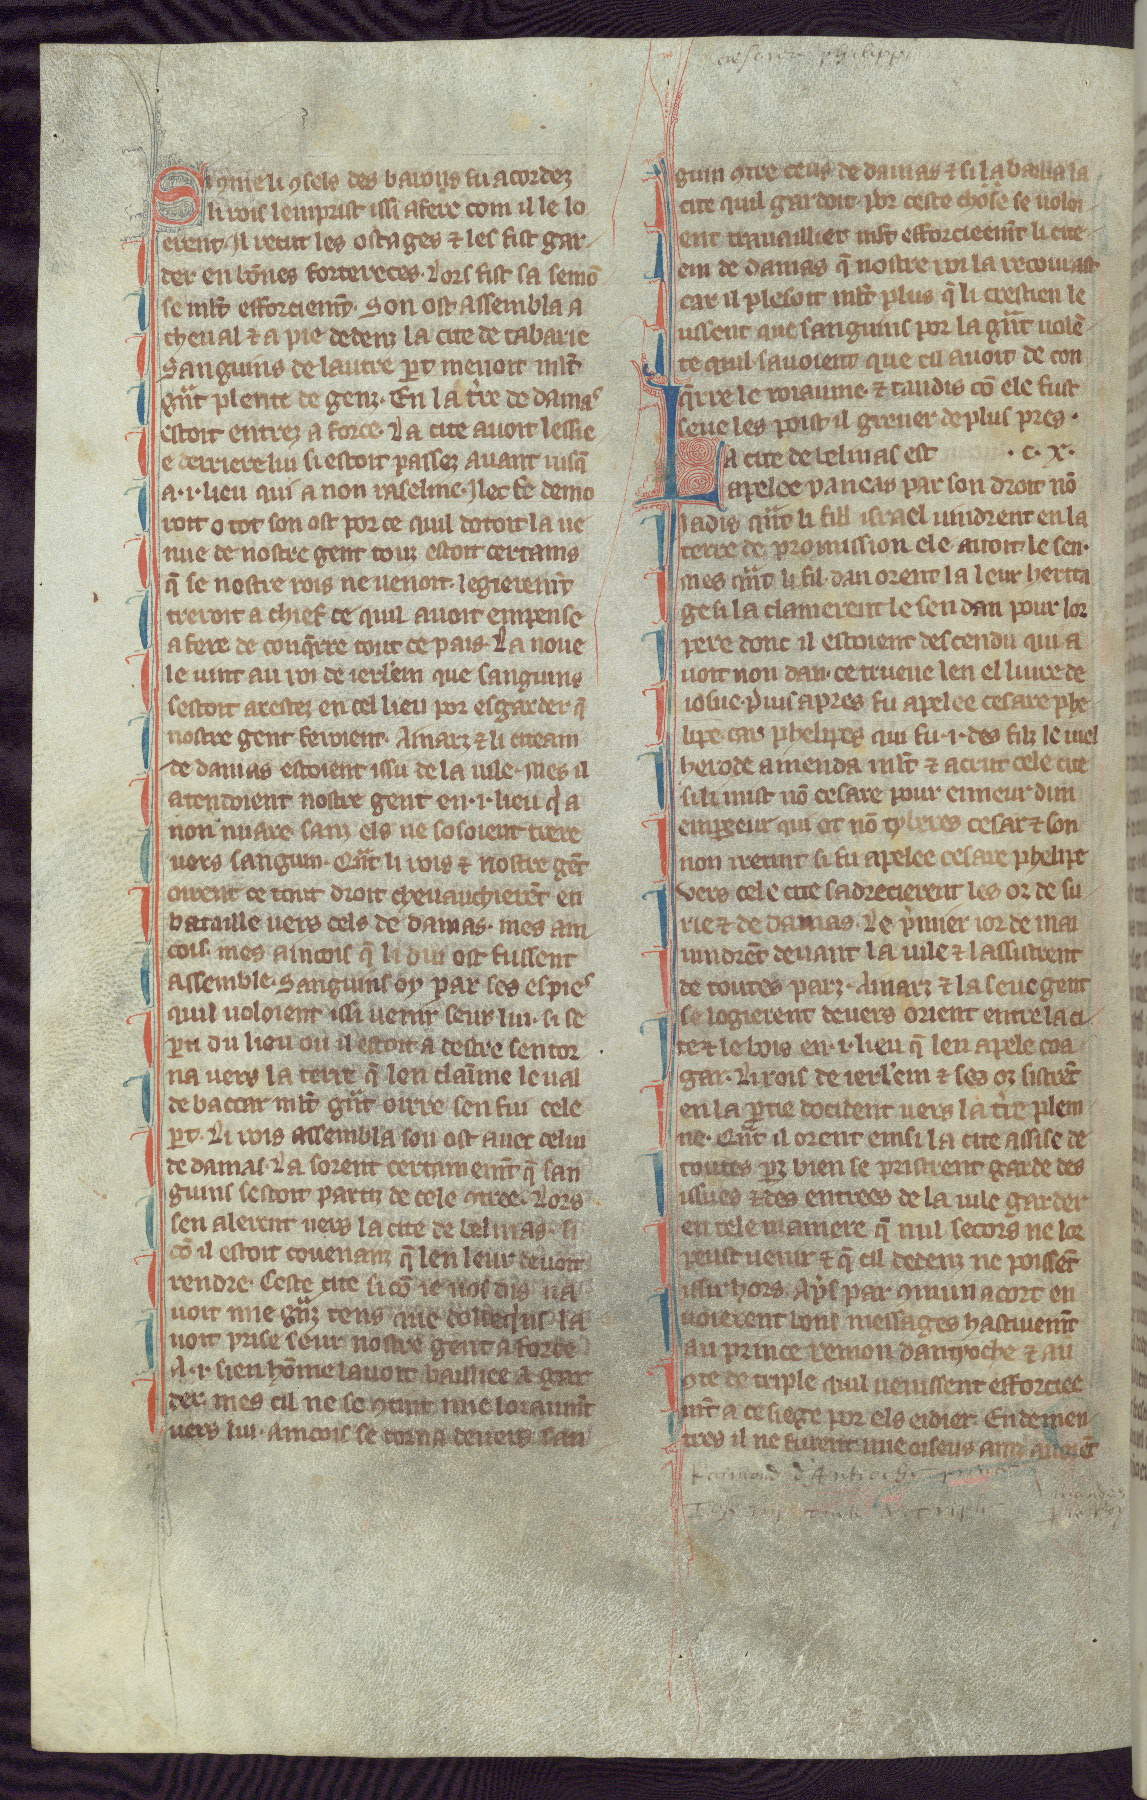 cesaree phelippe
Si gme li gsels des barons fu acordez
li rois lemprist issi afere com il le lo
erent. Il recut les ostages ⁊ les fist gar
der en bōnes fortereces. Lors fist sa semō
se mlt̄ efforciemt̄. Son ost assembla a
cheual ⁊ a pie dedenz la cite de tabarie
Sanguins de lautre ꝑt menoit mlt̄
gͣnt plente de genz. En la tr̄re de damas
estoit entrez a force. La cite auoit lessie
e derriere lui si estoit passez auant iusq̄
a .i. lieu qui a non raseline. Ilec se demo
roit o tot son ost por ce quil dotoit la ue
nue de nostre gent touz estoit certains
q̄ se nostre rois ne uenoit. legieremt̄
treroit a chief ce quil auoit empense
a fere de conq̄rre tout ce pais. La noue
le uint au roi de ierlem que sanguins
sestoit arestez en cel lieu por esgarder q̄
nostre gent feroient. Ainarz ⁊ li citeain
de damas estoient issu de la uile. Mes il
atendoient nostre gent en .i. lieu q̇ a
non nuare sanz els ne sosoient trere
uers sanguin. Qͣnt li rois ⁊ nostre gēt
oirent ce tout droit cheuauchierēt en
bataille uers cels de damas. mes ain
cois. mes aincois q̄ li dui ost fussent
assemble. Sanguins oy par ses espies
quil uoloient issi uenir seur lui. si se
ꝑti du lieu ou il estoit a destre sen tor
na uers la terre q̄ len claime le ual
de baccar mlt̄ gͣnt oirre sen fui cele
ꝑt. Li rois assembla son ost auec celui
de damas. La sorent certainemt̄ q̄ san
guins sestoit partiz de cele gtree. Lors
sen alerent uers la cite de belinas. si
cō il estoit couenanz q̄ len leur deuoit
rendre. Ceste cite si cō ie uos dis na
uoit mie gͣnz tens que doldequins la
uoit prise seur nostre gent a force
A .i. sien hōme lauoit baillice a gar
der. mes cil ne se gtint mie loiaumt̄
uers lui. Aincois se torna deuers san
guin gtre ceus de damas ⁊ si la bailla la
cite quil gardoit. Por ceste chose se uoloi
ent trauaillier mlt̄ efforcieemt̄ li cite
ein de damas q̄ nostre roi la recourast
car il plesoit mlt̄ plus q̄ li crestien le
ussent que sanguins por la gͣnt uolē
te quil sauoient que cil auoit de con
q̄rre le roiaume. ⁊ tandis cō ele fust
seue les poist il greuer de plus pres.
La cite de belinas est .c. X.
apelee paneas par son droit nō
Iadis qͣnt li fill israel uindrent en la
terre de promission ele auoit le sen.
mes qͣnt li fil dan orent la leur herita
ge si la clamerent le sen dan pour lor
pere donc il estoient descendu qui a
uoit non dan. ce trueue len el liure de
iosue. Puis apres fu apelee cesare phe
lipe car phelipes qui fu .i. des filz le uiel
herode amenda mlt̄ ⁊ acrut cele cite
si li mist nō cesare pour enneur dun
empeeur qui ot nō tyberes cesar ⁊ son
non iretint si fu apelee cesare phelipe
Vers cele cite sadrecierent les oz de su
rie ⁊ de damas. Le ṗmier ior de mai
uindrēt deuant la uile ⁊ lassistrent
de toutes parz. Ainarz ⁊ la seue gent
se logierent deuers orient entre la ci
te ⁊ le bois en .i. lieu q̄ len apele coa
gar. Li rois de ierlem ⁊ ses oz sistrēt
en la ꝑtie docident uers la tr̄re plein
ne. Qͣnt il orent einsi la cite assise de
toutes ꝑz bien se pristrent garde des
issues ⁊ des entrees de la uile garder
en tele maniere q̄ nul secors ne lor
peust uenir ⁊ q̄ cil dedenz ne poissēt
issir hors. Aps̄ par gmun acort en
uoierent bons messages hastiuemt̄
au prince remon dantyoche ⁊ au
gte de triple quil uenissent efforciee
mt̄ a ce siege por els eidier. Endemen
tres il ne furent mie oiseus ainz auoiēt
Raimond d'Antioche prince
mandez